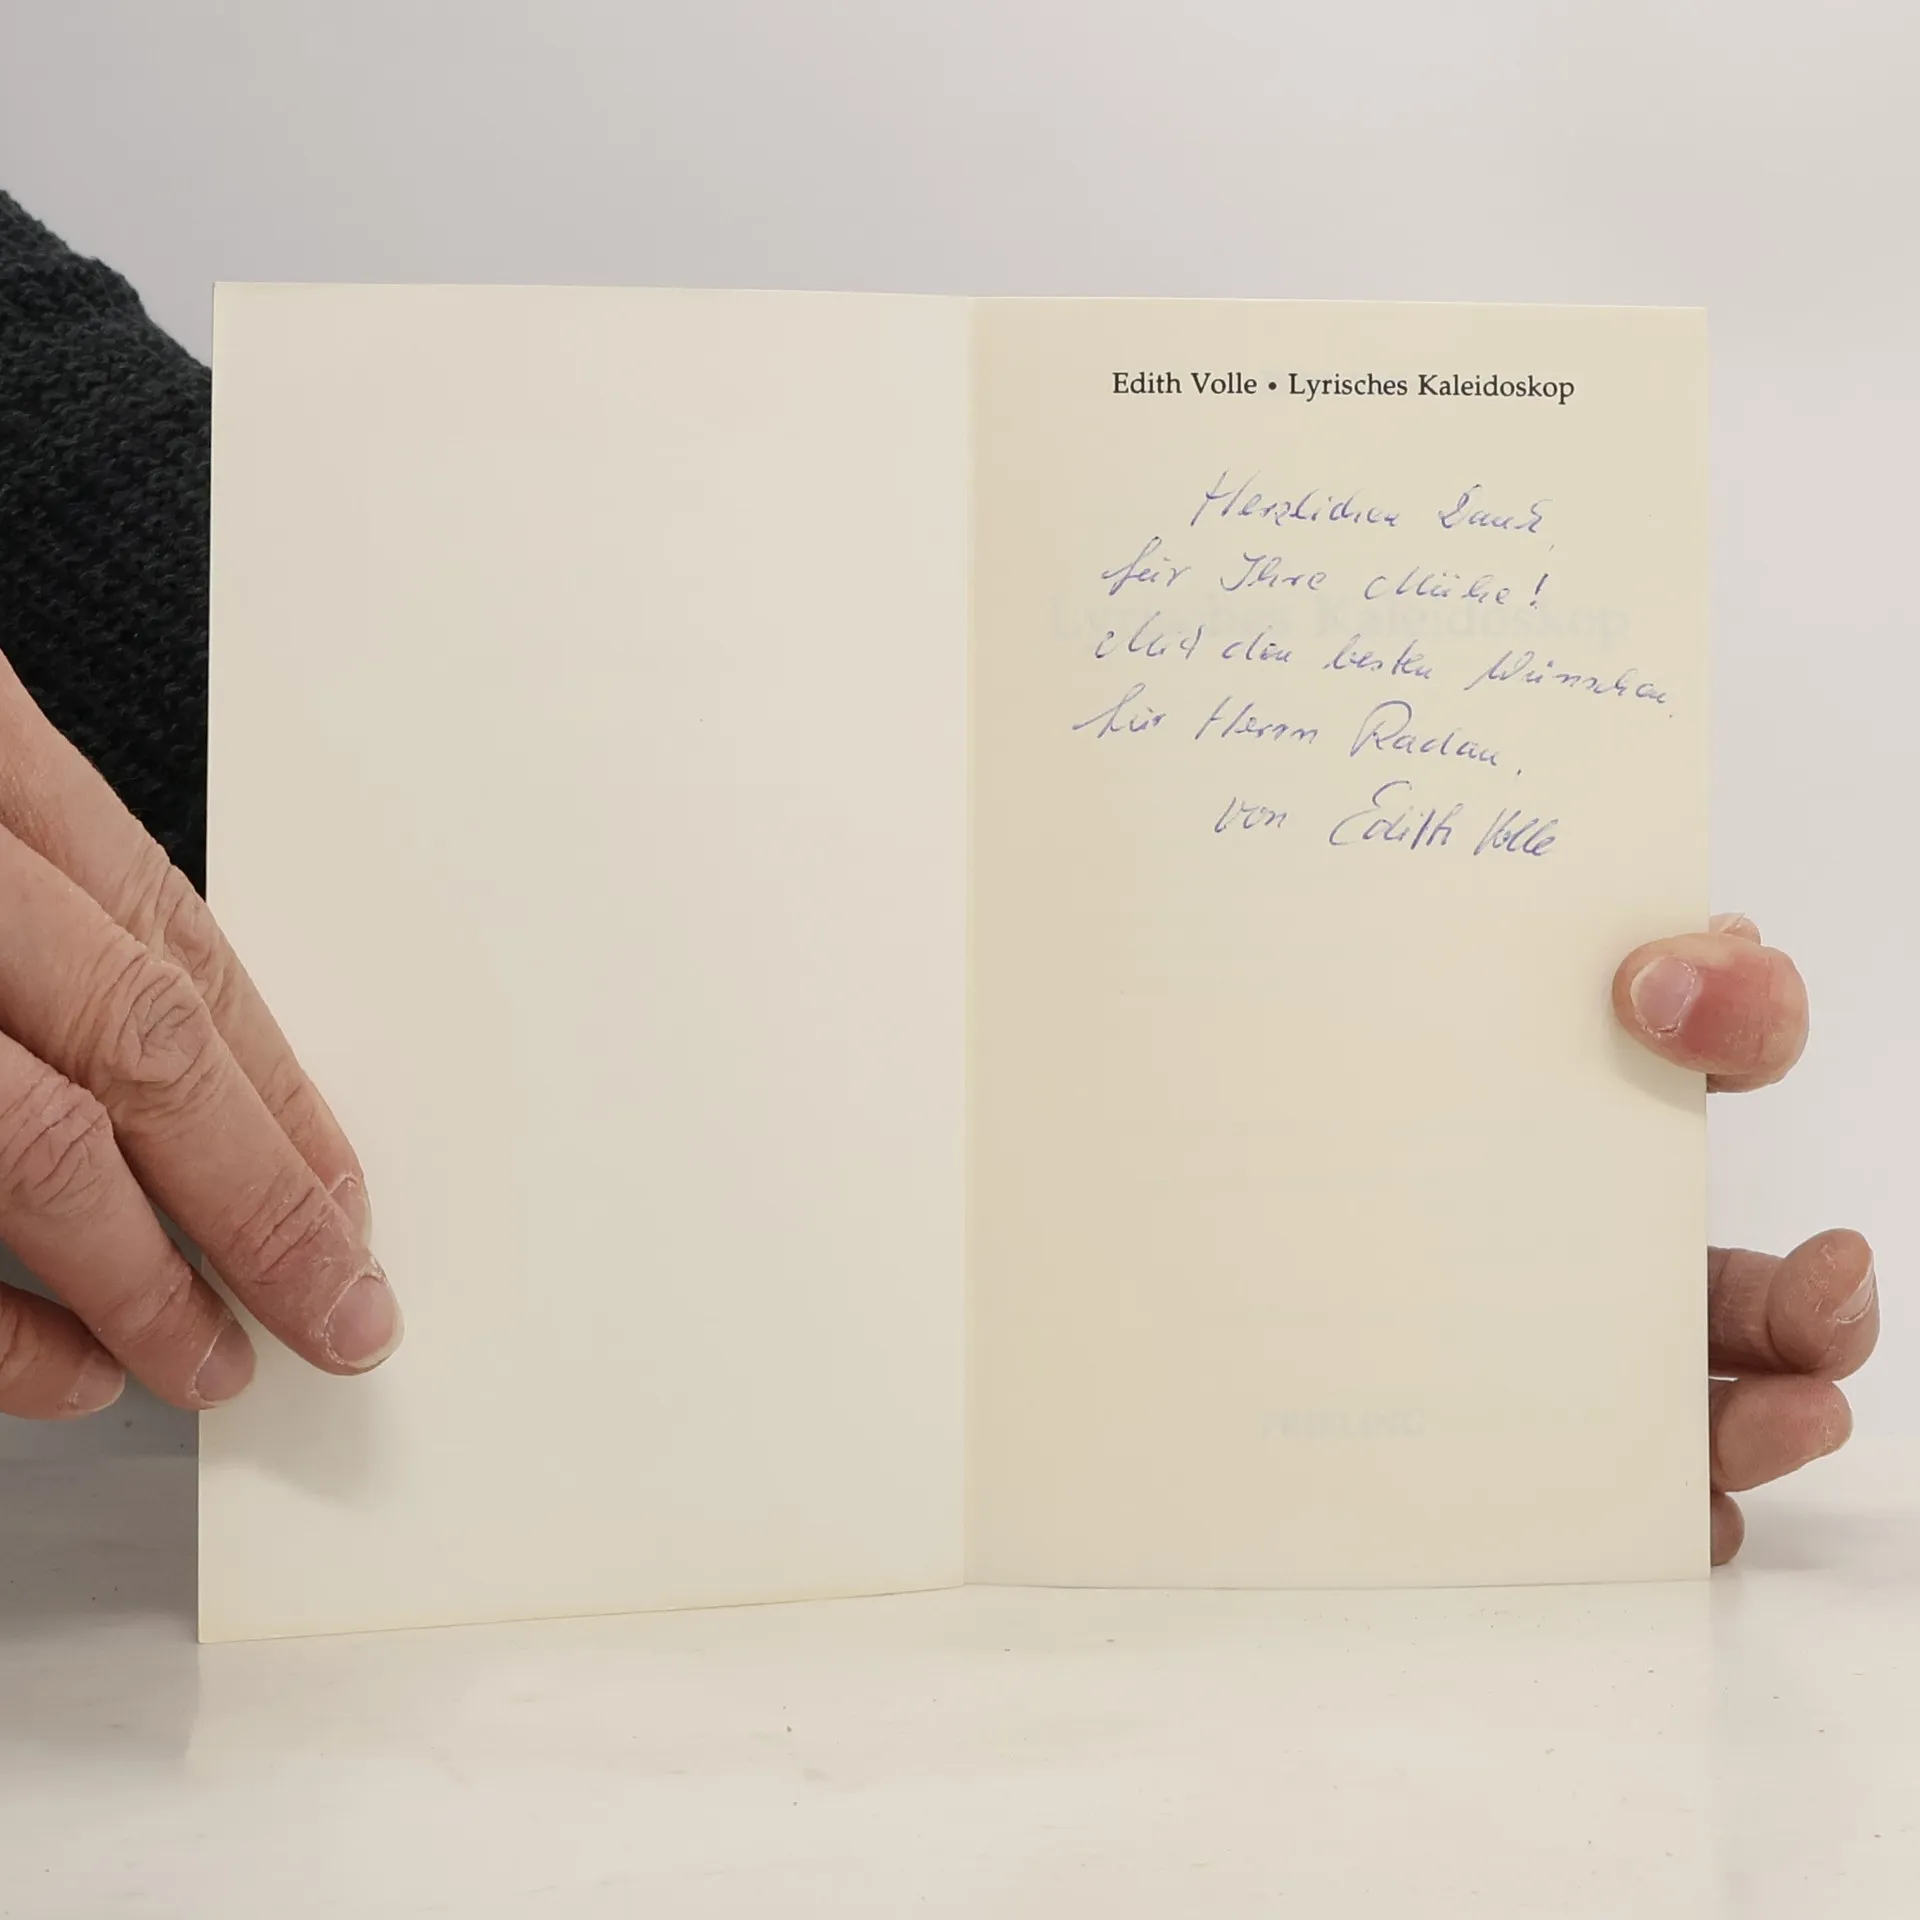 Edith Volle • Lyrisches Kaleidoskop
Herzlichen Dank,
für Ihre Mühe!
Lyrisches Kaleidoskop
Mit den besten Wünschen
für Herrn Radau,
von Edith Volle
FRIELING